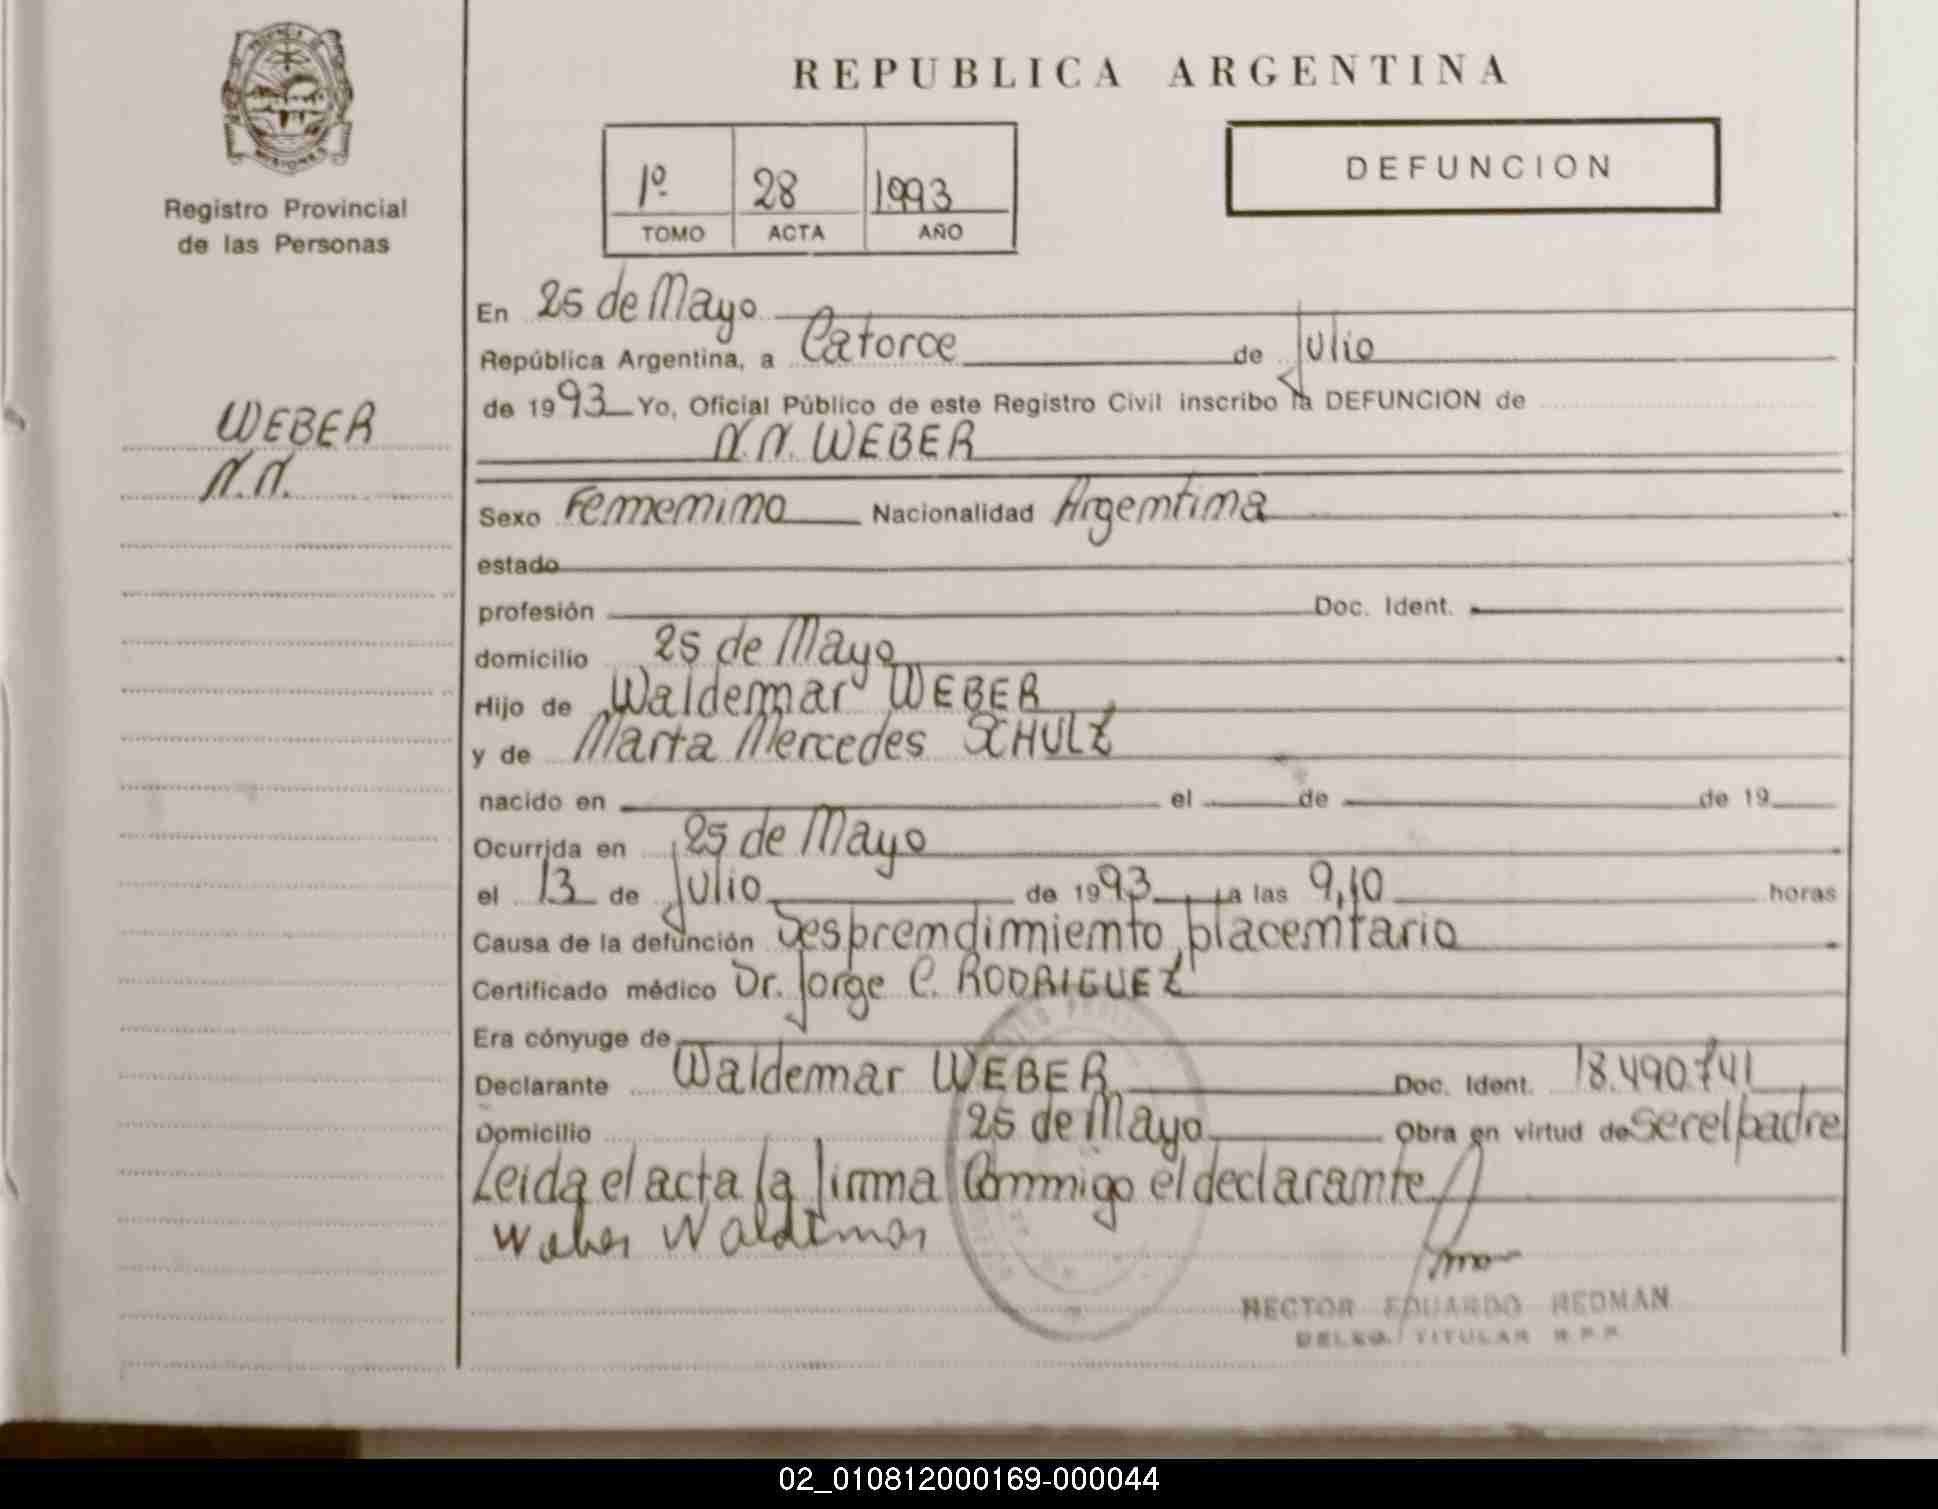 PROVINCIA DE
MISIONES
Registro Provincial
de las Personas
WEBER
N.N.
REPUBLICA ARGENTINA
1º 28 1993
TOMO ACTA AÑO
DEFUNCION
En 25 de Mayo
República Argentina, a Catorce de Julio
de 1993 Yo, Oficial Público de este Registro Civil inscribo la DEFUNCION de
N.N. WEBER
Sexo Femenino Nacionalidad Argentina
estado
profesión Doc. Ident.
domicilio 25 de Mayo
Hijo de Waldemar WEBER
y de Marta Mercedes SCHULZ
nacido en el de de 19
Ocurrida en 25 de Mayo
el 13 de Julio de 1993 a las 9,10 horas
Causa de la defunción Desprendimiento placentario
Certificado médico Dr. Jorge C. RODRIGUEZ
Era cónyuge de
Declarante Waldemar WEBER Doc. Ident. 18.490.741
Domicilio 25 de Mayo Obra en virtud de ser el padre
Leida el acta la firma Conmigo el declarante
Weber Waldemar
HECTOR EDUARDO REDMAN
DELEG. TITULAR R.P.P.
02_010812000169-000044